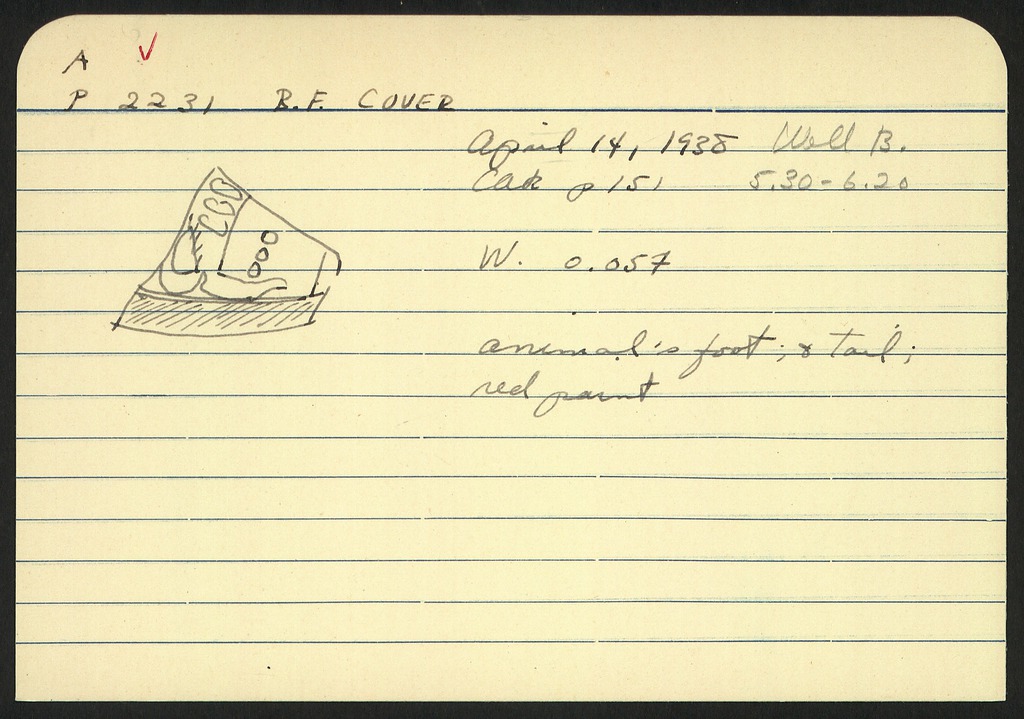 A ✓
P 2231 B.F. COVER
April 14, 1938 Well B.
p 151 5.30-6.20
W. 0.057
animal's foot; & tail;
red paint